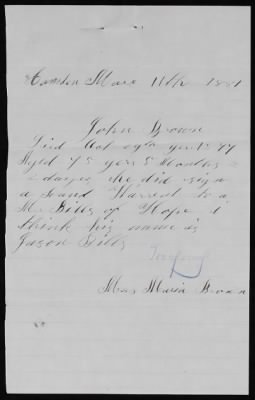 Camden Marx 11th 1881
John Brown
Died Oct 09th yer 1847
Aged 75 yers 5 Months
2 dayes he did sign
a Land Warrent to a
Mr Bills of Hope i
think his name is
Jason Bills
Mrs Maria Brown